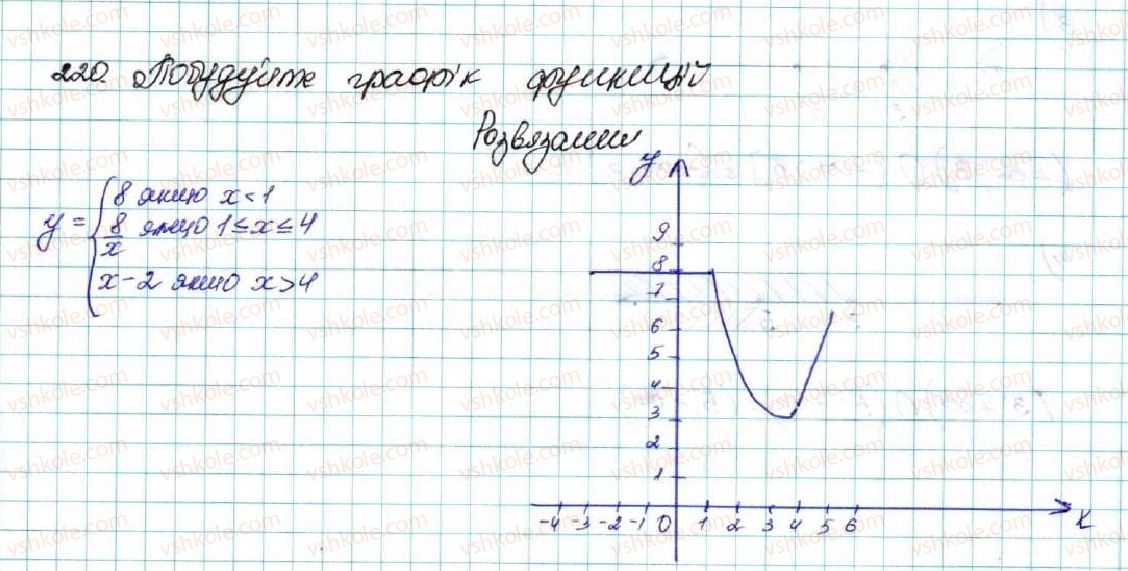 220. Побудуйте графік функцій
Розвязання
y = { 8 якщо x < 1
8/x якщо 1 ≤ x ≤ 4
x - 2 якщо x > 4
y
9
8
7
6
5
4
3
2
1
-4 -3 -2 -1 0 1 2 3 4 5 6
x
vshkole.com